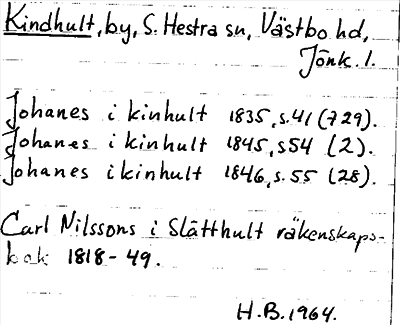 Kindhult, by, S. Hestra sn, Västbo hd,
Jönk. l.
Johanes i kinhult 1835, s. 41 (729).
Johanes i kinhult 1845, s 54 (2).
Johanes i kinhult 1846, s. 55 (28).
Carl Nilssons i Slätthult räkenskaps-
bok 1818-49.
H.B. 1964.